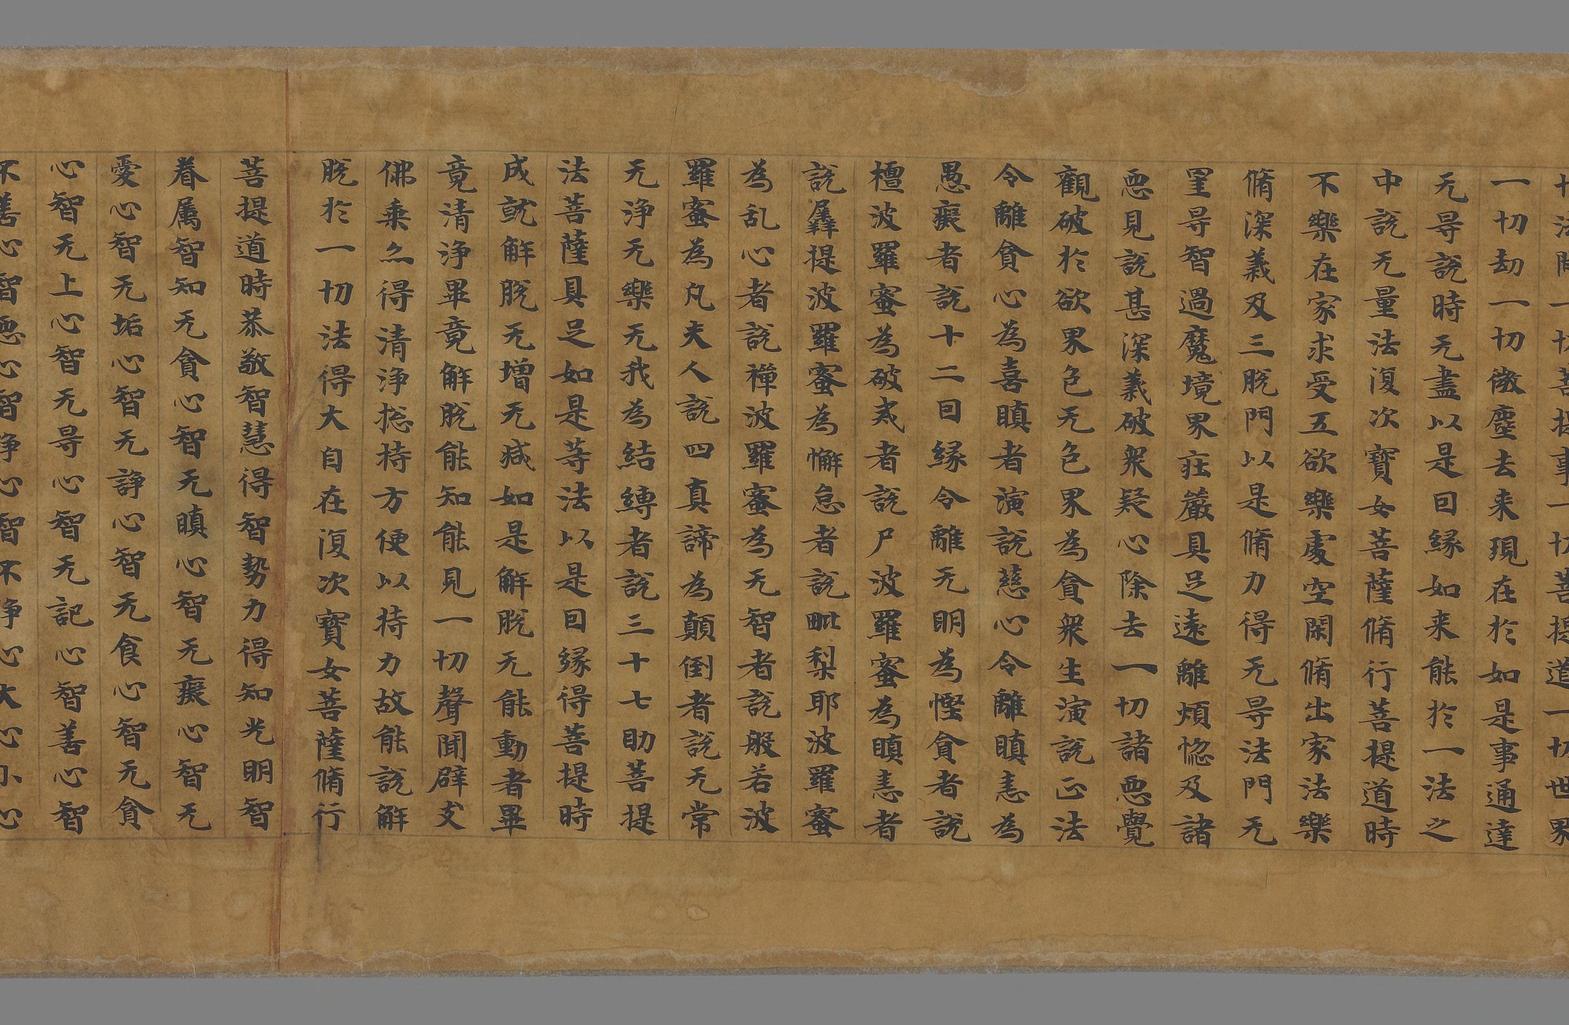 法門一切菩提事一切菩提道一切世界
一切劫一切微塵去来現在於如是事通達
无㝵說時无盡以是因緣如来能於一法之
中說无量法復次寶女菩薩脩行菩提道時
不樂在家求受五欲樂處空閑脩出家法樂
脩深義及三脫門以是脩力得无㝵法門无
罣㝵智過魔境界莊嚴具足遠離煩惱及諸
惡見說甚深義破衆疑心除去一切諸惡覺
觀破於欲界色无色界為貪衆生演說正法
令離貪心為喜瞋者演說慈心令離瞋恚為
愚癡者說十二因緣令離无明為慳貪者說
檀波羅蜜為破戒者說尸波羅蜜為瞋恚者
說羼提波羅蜜為懈怠者說毗梨耶波羅蜜
為乱心者說禪波羅蜜為无智者說般若波
羅蜜為凡夫人說四真諦為顛倒者說无常
无淨无樂无我為結縛者說三十七助菩提
法菩薩具足如是等法以是因緣得菩提時
成就解脫无增无減如是解脫无能動者畢
竟清淨畢竟解脫能知能見一切聲聞辟支
佛乘亦得清淨捴持方便以持力故能說解
脫於一切法得大自在復次寶女菩薩脩行
菩提道時恭敬智慧得智勢力得知光明智
眷属智知无貪心智无瞋心智无癡心智无
愛心智无垢心智无諍心智无食心智无貪
心智无上心智无㝵心智无記心智善心智
不善心智惡心智淨心智不淨心大心小心